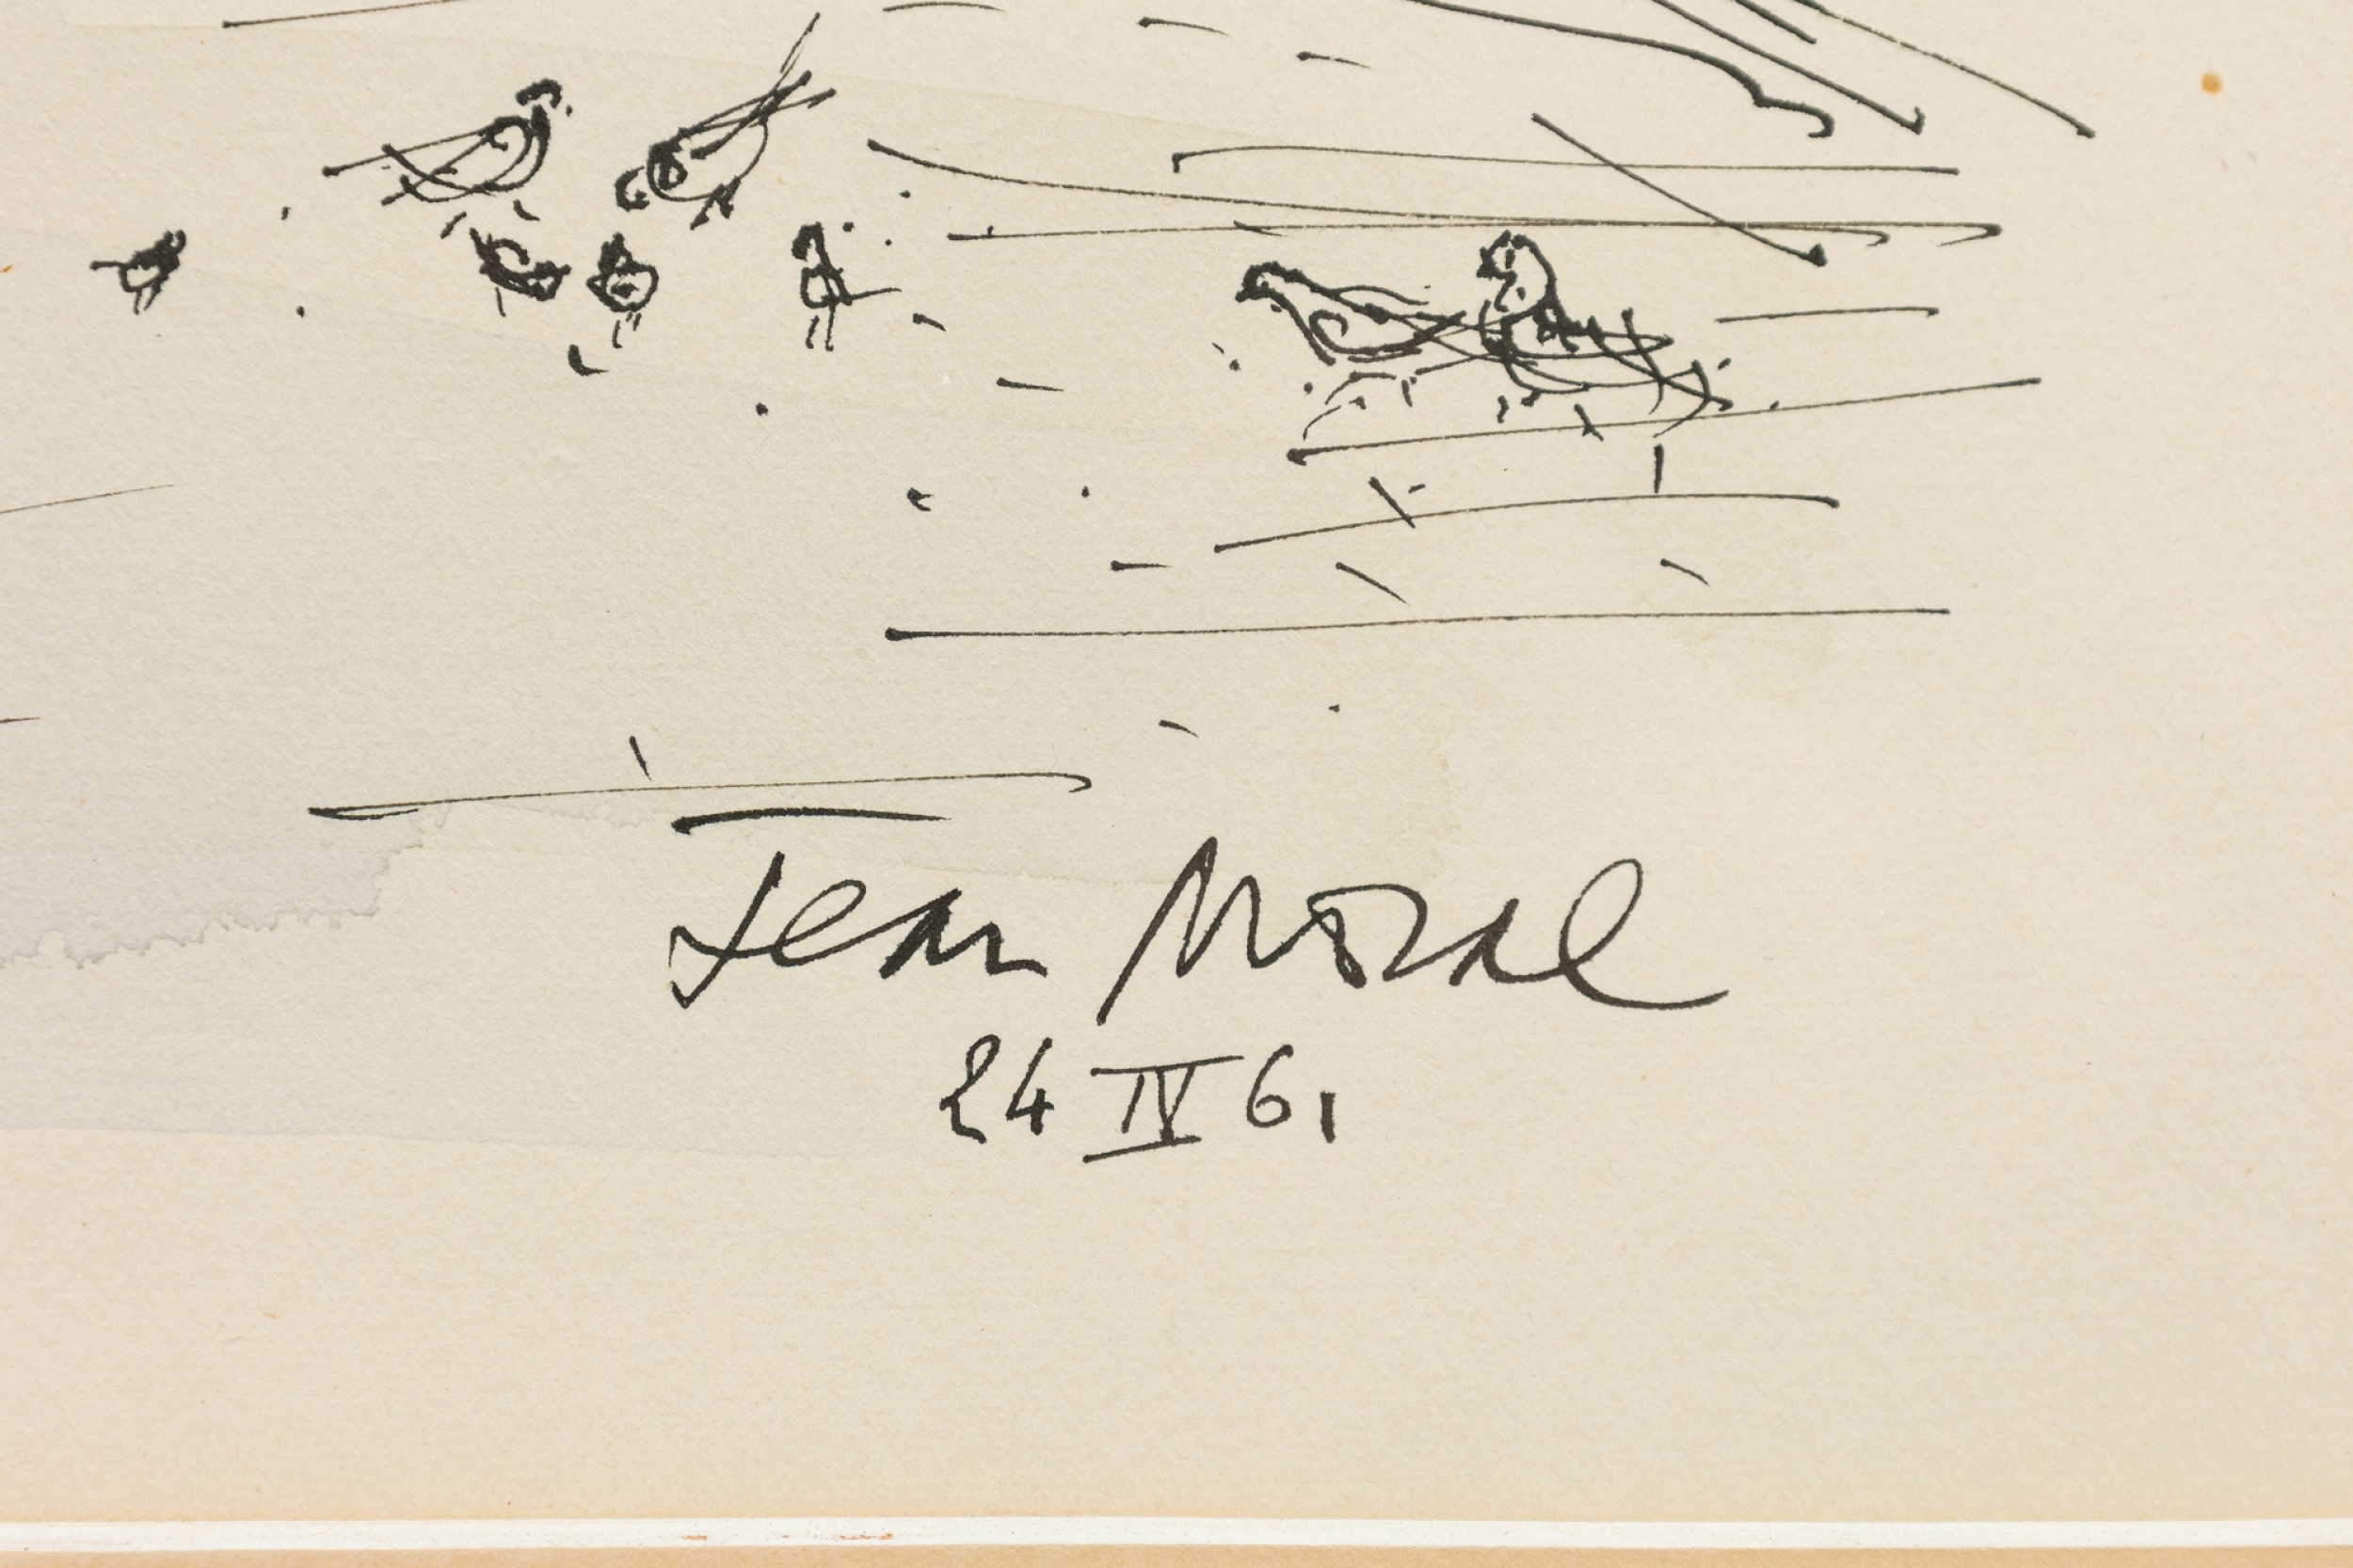 Jean Moral
24 IV 61